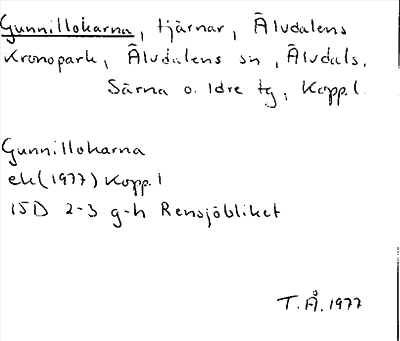 Gunnillokarna, tjärnar, Älvdalens
Kronopark, Älvdalens sn, Älvdals,
Särna o. Idre tg, Kopp.l.
Gunnillokarna
ek(1977) Kopp.l
15D 2-3 g-h Rensjöbliket
T.Å. 1977